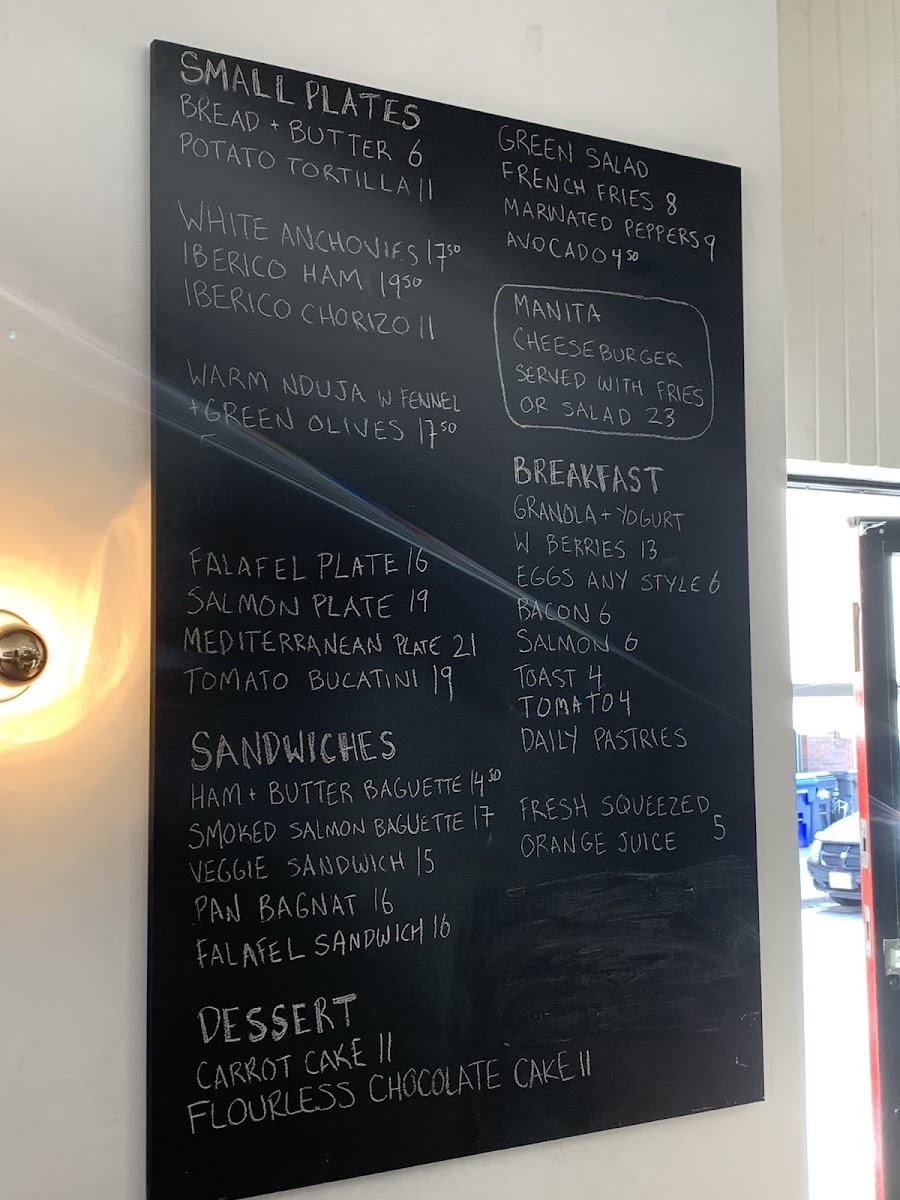 SMALL PLATES
BREAD + BUTTER 6
POTATO TORTILLA 11
WHITE ANCHOVIES 17⁵⁰
IBERICO HAM 19⁵⁰
IBERICO CHORIZO 11
WARM NDUJA W FENNEL
+ GREEN OLIVES 17⁵⁰
FALAFEL PLATE 16
SALMON PLATE 19
MEDITERRANEAN PLATE 21
TOMATO BUCATINI 19
SANDWICHES
HAM + BUTTER BAGUETTE 14⁵⁰
SMOKED SALMON BAGUETTE 17
VEGGIE SANDWICH 15
PAN BAGNAT 16
FALAFEL SANDWICH 16
DESSERT
CARROT CAKE 11
FLOURLESS CHOCOLATE CAKE 11
GREEN SALAD
FRENCH FRIES 8
MARINATED PEPPERS 9
AVOCADO 4⁵⁰
MANITA
CHEESEBURGER
SERVED WITH FRIES
OR SALAD 23
BREAKFAST
GRANOLA + YOGURT
W BERRIES 13
EGGS ANY STYLE 6
BACON 6
SALMON 6
TOAST 4
TOMATO 4
DAILY PASTRIES
FRESH SQUEEZED
ORANGE JUICE 5